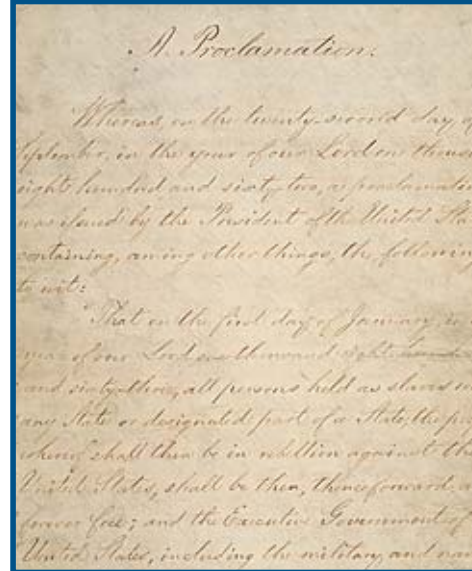 A Proclamation.
Whereas, on the twenty-second day o
September, in the year of our Lord one thous
eight hundred and sixty-two, a proclamatio
was issued by the President of the United Sta
containing, among other things, the following
to wit:
"That on the first day of January, in
year of our Lord one thousand eight hund
and sixty-three, all persons held as slaves
any State or designated part of a State, the pe
whereof shall then be in rebellion against the
United States, shall be then, thenceforward a
forever free; and the Executive Government of
United States, including the military and nav